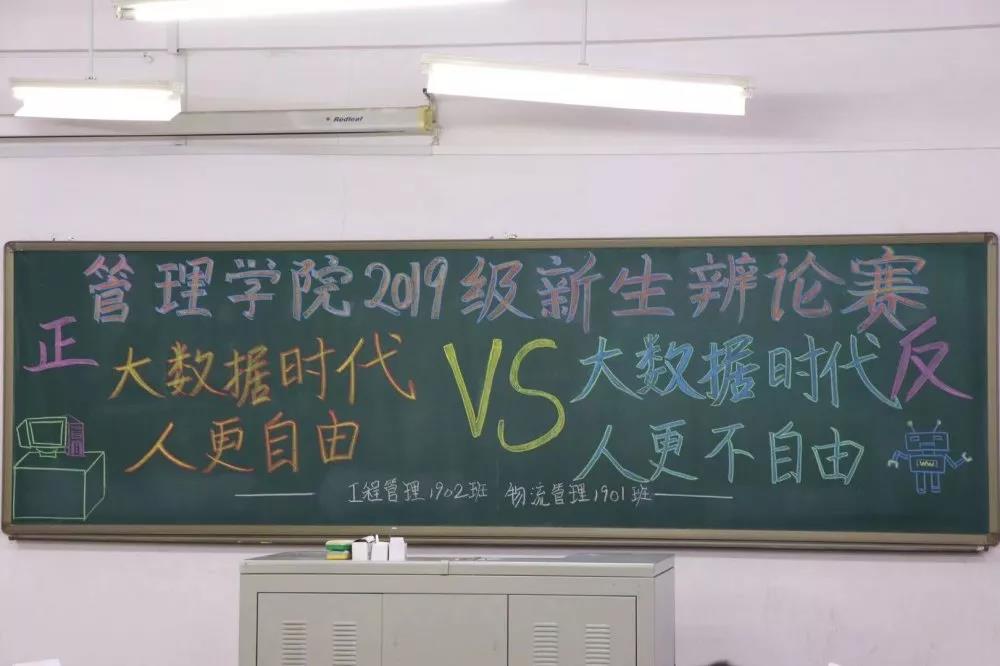 Redleaf
管理学院2019级新生辨论赛
正 大数据时代 VS 大数据时代 反
人更自由 人更不自由
工程管理1902班 物流管理1901班